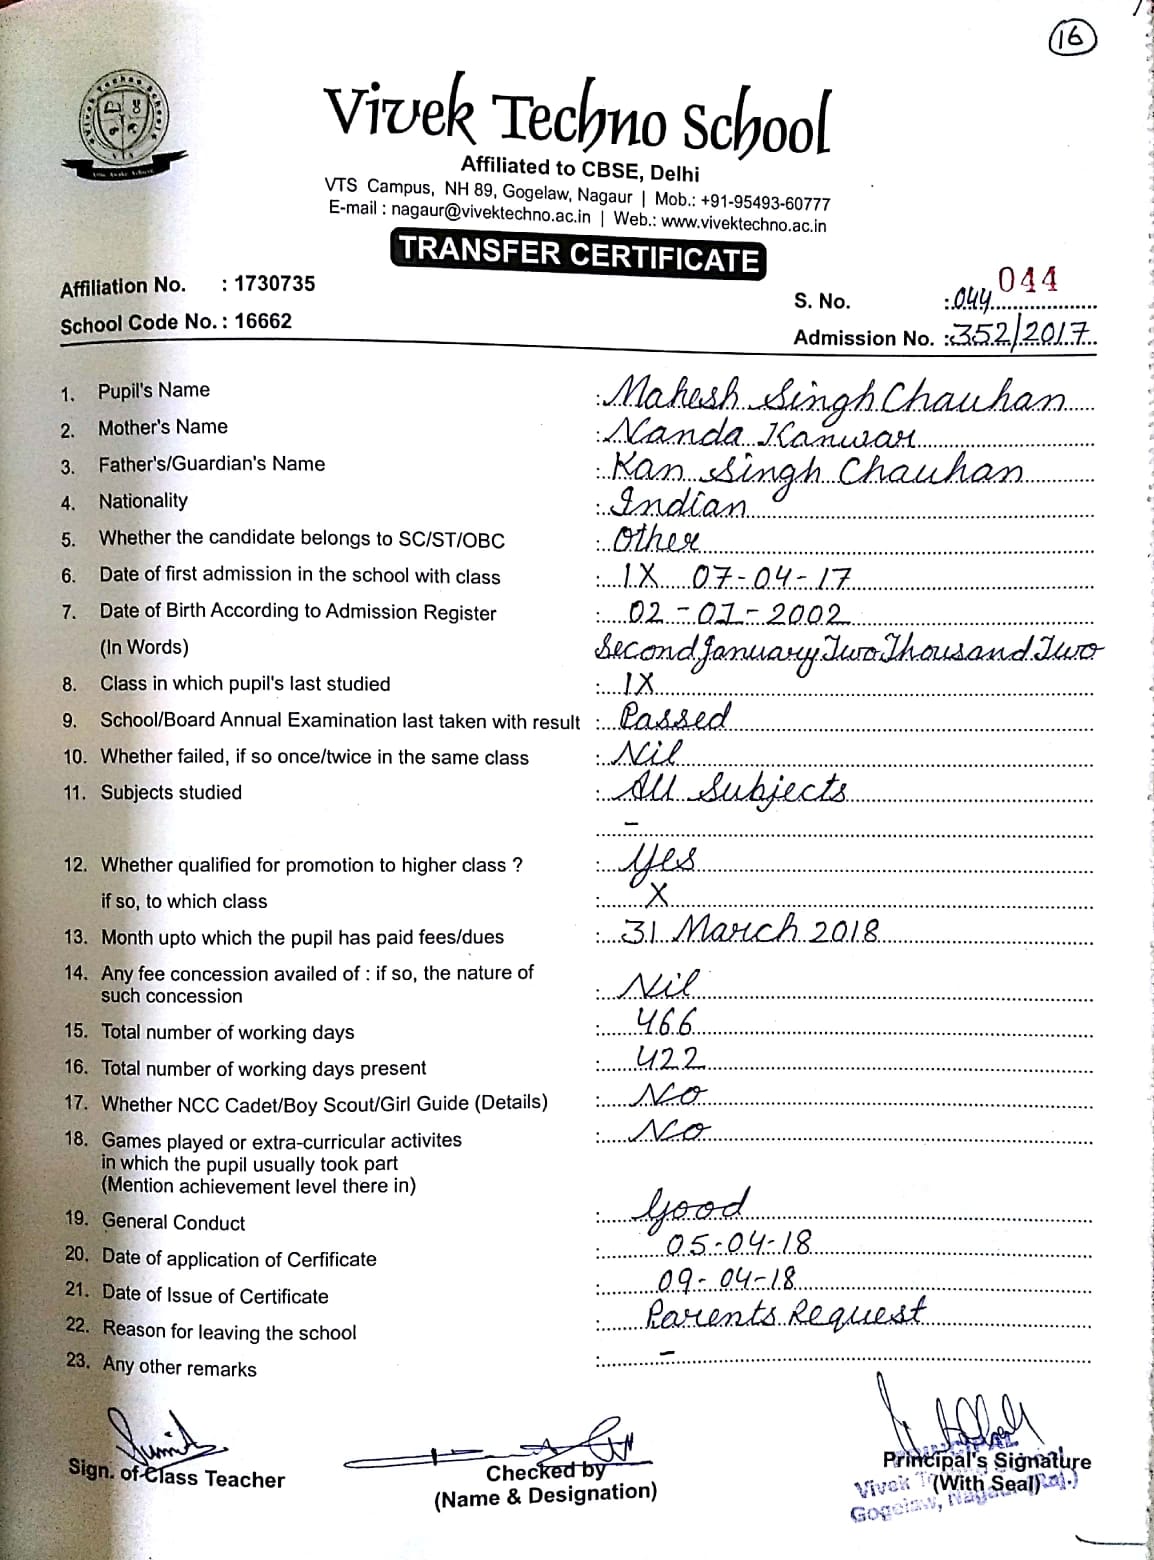 16
Vivek Techno School
Vivek Techno School
Affiliated to CBSE, Delhi
VTS Campus, NH 89, Gogelaw, Nagaur | Mob.: +91-95493-60777
E-mail : nagaur@vivektechno.ac.in | Web.: www.vivektechno.ac.in
TRANSFER CERTIFICATE
Affiliation No. : 1730735
S. No. : 044 044
School Code No. : 16662
Admission No. : 352/2017
1. Pupil's Name : Mahesh Singh Chauhan
2. Mother's Name : Nanda Kanwar
3. Father's/Guardian's Name : Kan Singh Chauhan
4. Nationality : Indian
5. Whether the candidate belongs to SC/ST/OBC : Other
6. Date of first admission in the school with class : IX 07-04-17
7. Date of Birth According to Admission Register : 02-01-2002
(In Words) Second January Two Thousand Two
8. Class in which pupil's last studied : IX
9. School/Board Annual Examination last taken with result : Passed
10. Whether failed, if so once/twice in the same class : Nil
11. Subjects studied : All Subjects
–
12. Whether qualified for promotion to higher class ? : Yes
if so, to which class : X
13. Month upto which the pupil has paid fees/dues : 31 March 2018
14. Any fee concession availed of : if so, the nature of
such concession : Nil
15. Total number of working days : 466
16. Total number of working days present : 422
17. Whether NCC Cadet/Boy Scout/Girl Guide (Details) : No
18. Games played or extra-curricular activites : No
in which the pupil usually took part
(Mention achievement level there in)
19. General Conduct : Good
20. Date of application of Cerfificate : 05-04-18
21. Date of Issue of Certificate : 09-04-18
22. Reason for leaving the school : Parents Request
23. Any other remarks : –
Sumit
Sign. of Class Teacher
Checked by
(Name & Designation)
PRINCIPAL
Principal's Signature
(With Seal)
Vivek (Raj.)
Gogelaw,